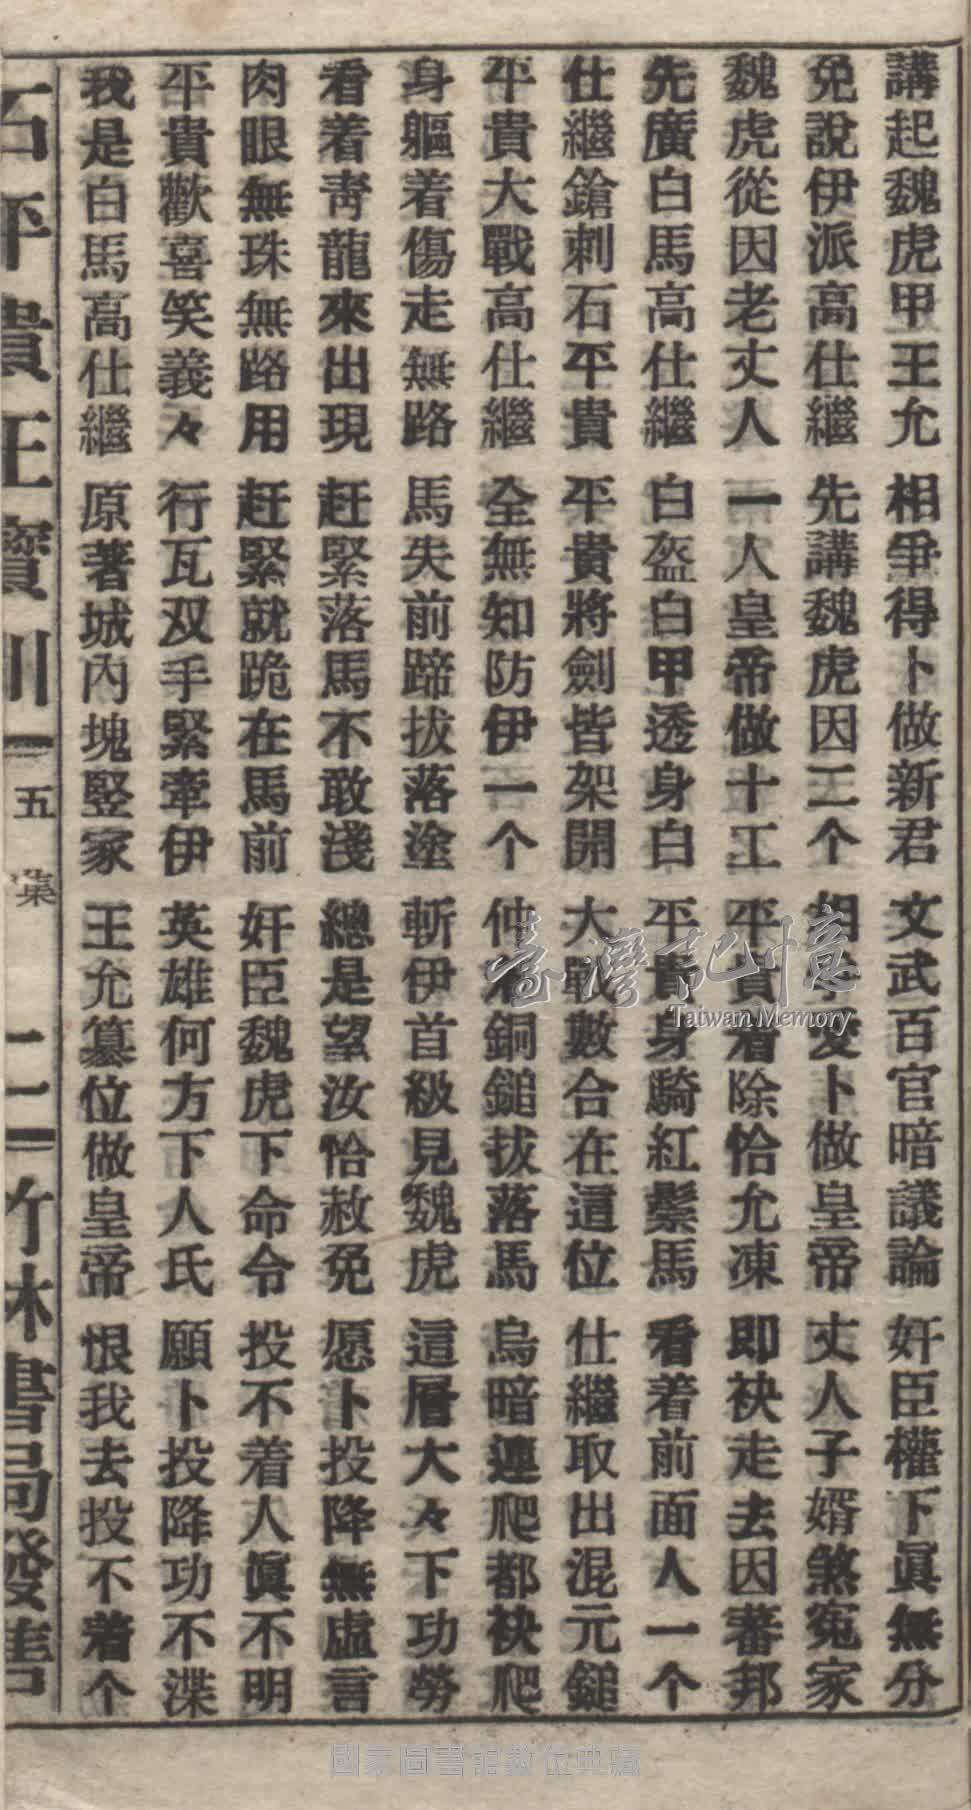 講起魏虎甲王允 相爭得卜做新君 文武百官暗議論 奸臣權下眞無分
免說伊派高仕繼 先講魏虎因二个 相爭愛卜做皇帝 丈人子婿煞寃家
魏虎從因老丈人 一人皇帝做十工 平貴看除恰允凍 即袂走去因蕃邦
先廣白馬高仕繼 白盔白甲透身白 平貴身騎紅鬃馬 看着前面人一个
仕繼鎗刺石平貴 平貴將劍皆架開 大戰數合在這位 仕繼取出混元鎚
平貴大戰高仕繼 全無知防伊一个 仲着銅鎚拔落馬 烏暗連爬都袂爬
身軀着傷走無路 馬失前蹄拔落塗 斬伊首級見魏虎 這層大々下功勞
看着靑龍來出現 赶緊落馬不敢淺 總是望汝恰赦免 愿卜投降無虛言
肉眼無珠無路用 赶緊就跪在馬前 奸臣魏虎下命令 投不着人眞不明
平貴歡喜笑義々 行瓦双手緊牽伊 英雄何方下人氏 願卜投降功不渫
我是白馬高仕繼 原著城內塊竪家 王允纂位做皇帝 恨我去投不着个
石平貴王寶川 五集 二 竹林書局發售
臺灣記憶
Taiwan Memory
國家圖書館數位典藏